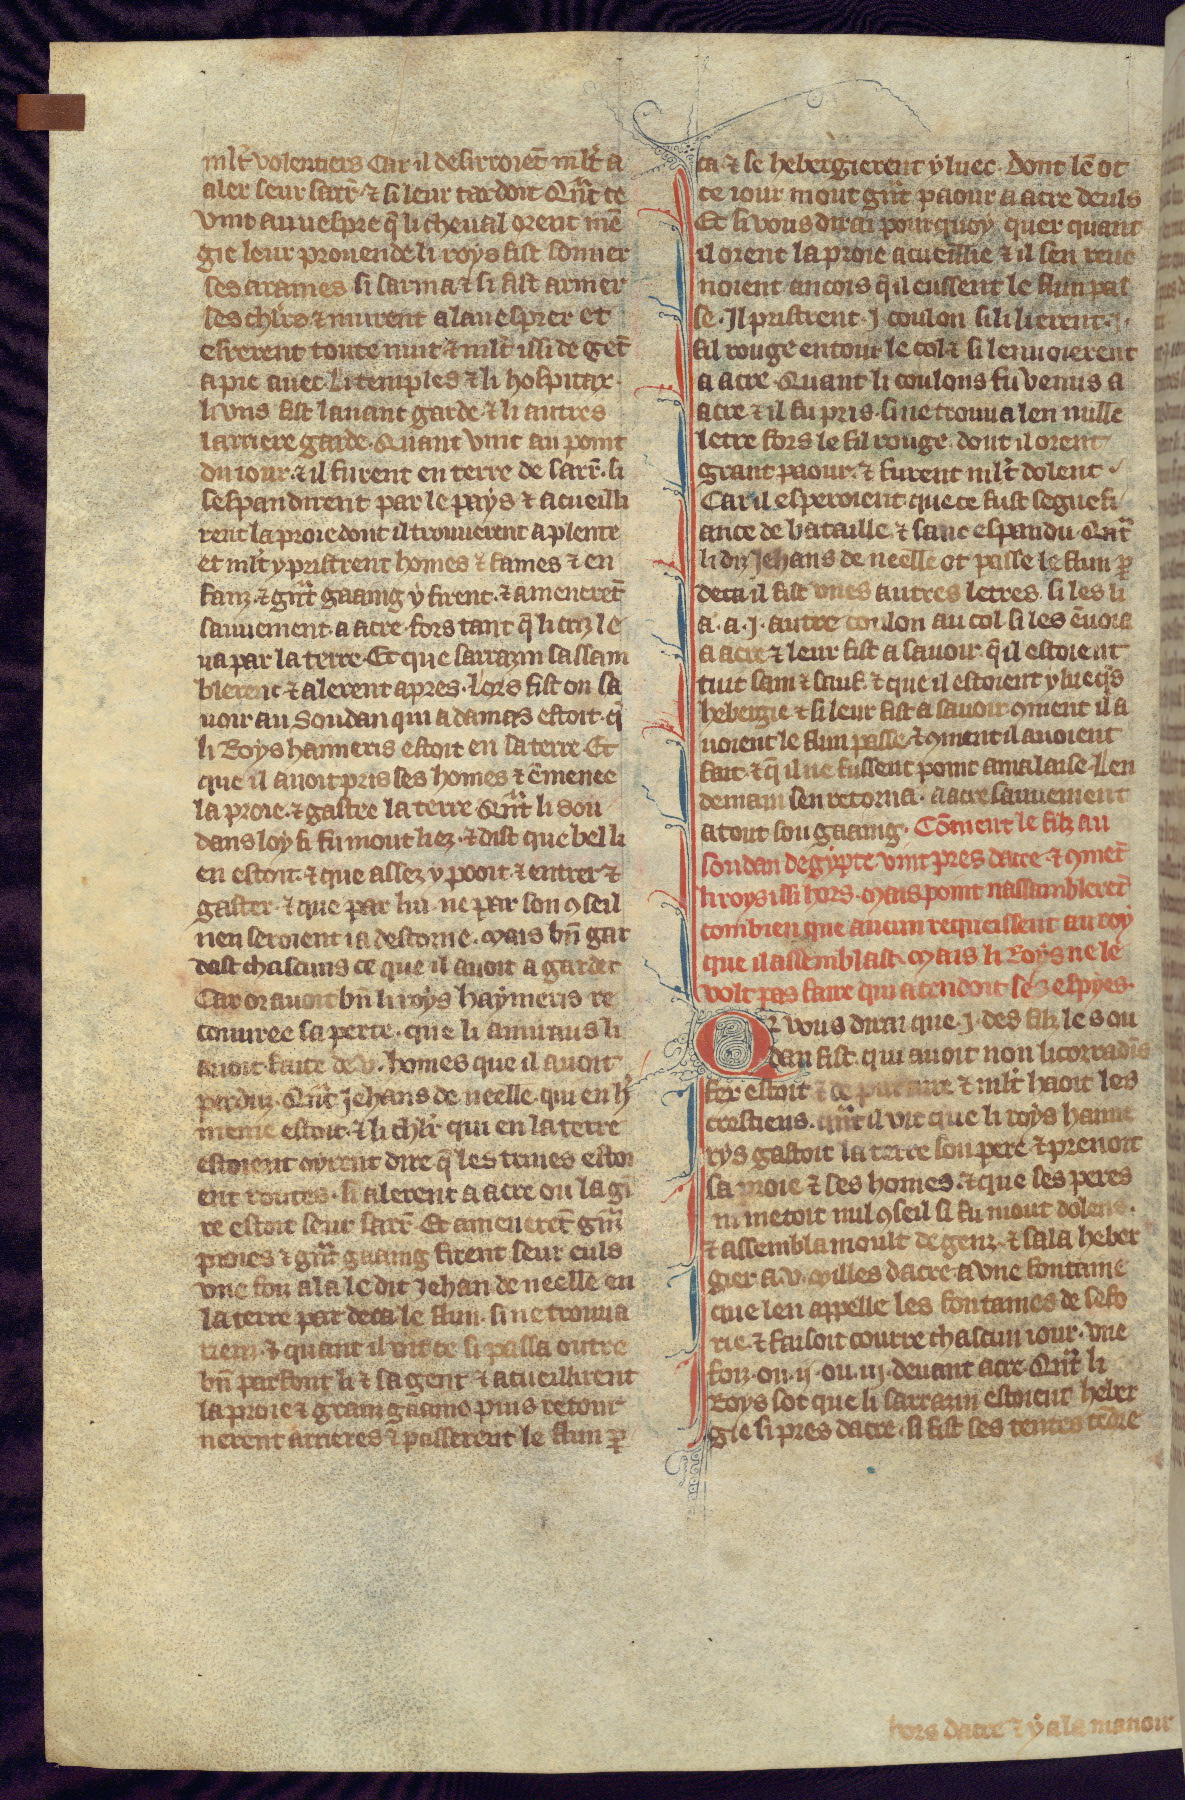 ml̃t volentiers Car il desirroiẽt ml̃t a
aler seur sarr̃ ⁊ si leur tardoit Qñt ce
vint au uespre q̃ li cheual orent mẽ
gie leur prouende li roys fist sonner
ses araines si sarma ⁊ si fist armer
ses chl̃rs ⁊ murent a lauesprer et
errerent toute nuit ⁊ ml̃t issi de gẽt
a pie auec li temples ⁊ li hospitax.
li vns fist lauant garde ⁊ li autres
larriere garde. Quant vint au point
du iour. ⁊ il furent en terre de sarr̃. si
sespandirent par le pays ⁊ acueilli
rent la proie dont il trouuerent a plente
et ml̃t y pristrent homes ⁊ fames ⁊ en
fanz. ⁊ gñt gaaing y firent. ⁊ amenerẽt
sauuement a acre fors tant q̃ li criz le
ua par la terre. Et que sarrazin sassam
blerent ⁊ alerent apres. Lors fist on sa
uoir au Soudan qui a damas estoit. q̃
li Roys haimeris estoit en sa terre. Et
que il auoit pris ses homes ⁊ ẽmenee
la proie. ⁊ gastee la terre Qñt li sou
dans loy si fu mout liez. ⁊ dist que bel li
en estoit. ⁊ que assez y pooit. ⁊ entrer ⁊
gaster. ⁊ que par lui ne par son ꝯseil
nen seroient ia destorne. Mais bñ gar
dast chascuns ce que il auoit a garder
Car or auoit bñ li roys haymeris re
couuree sa perte. que li amiraus li
auoit faite de .v. homes que il auoit
perduz. Qñt Jehans de neelle. qui en h̃
menie estoit. ⁊ li chl̃r qui en la terre
estoient oyrent dire q̃ les triues estoi
ent routes. si alerent a acre ou la gr̃
re estoit seur sarr̃. Et amenerẽt gñt
proies ⁊ gñt gaaing firent seur euls
vne foiz ala le dit Jehan de neelle en
la terre par deca le flun. si ne trouua
riens. ⁊ quant il vit ce si passa outre
bñ parfont li ⁊ sa gent. ⁊ acueillirent
la proie ⁊ grant gaaing puis retour
nerent arrieres ⁊ passerent le flun ꝑ
ca ⁊ se hebergierent yluec. Dont lẽ ot
ce iour mout gñt paour a acre deuls
Et si vous dirai pour quoy. quer quant
il orent la proie acueillie ⁊ il sen reue
noient ancois q̃ il eussent le flun pas
se. Il pristrent .j. coulon si li lierent .j.
fil rouge entour le col ⁊ si lenuoierent
a acre. Quant li coulons fu venus a
acre ⁊ il fu pris. si ne trouua len nulle
letre fors le fil rouge. dont il orent
grant paour. ⁊ furent ml̃t dolent
Car il esperoient que ce fust segnefi
ance de bataille. ⁊ sanc espandu. Qñt
li diz Jehans de neelle ot passe le flun ꝑ
deca il fist vnes autres letres. si les li
a. a .j. autre coulon au col si les ẽuoia
a acre ⁊ leur fist a sauoir q̃ il estoient
tuit sain ⁊ sauf. ⁊ que il estoient yluecq̃s
hebergie ⁊ si leur fist a sauoir ꝯment il a
uoient le flun passe ⁊ ꝯment il auoient
fait. ⁊ q̃ il ne fussent point a malaise. Len
demain sen retorna. a acre sauuement
a tout son gaaing. Cõment le filz au
soudan degypte vint pres dacre. ⁊ ꝯmẽt
li roys issi hors. Mais point nassamblerẽt
combien que aucun requeissent au roy
que il assemblast. Mais li Roys ne le
volt pas faire qui atendoit ses espyes.
Or vous dirai que .j. des filz le sou
dan fist. qui auoit non li corradĩs
fer estoit ⁊ ml̃t haoit les
crestiens. qñt il vit que li roys haime
rys gastoit la terre son pere ⁊ prenoit
sa proie ⁊ ses homes. ⁊ que ses peres
ni metoit nul ꝯseil si fu mout dolens.
⁊ assembla moult de genz. ⁊ sala heber
gier a .v. Milles dacre a vne fontaine
que len appelle les fontaines de sefo
rie. ⁊ faisoit courre chascun iour. vne
foiz. ou .ij. ou .iij. deuant acre. Qñt li
Roys sot que li sarrazin estoient heber
gie si pres dacre. si fist ses tentes tẽdre
hors dacre ⁊ y ala manoir